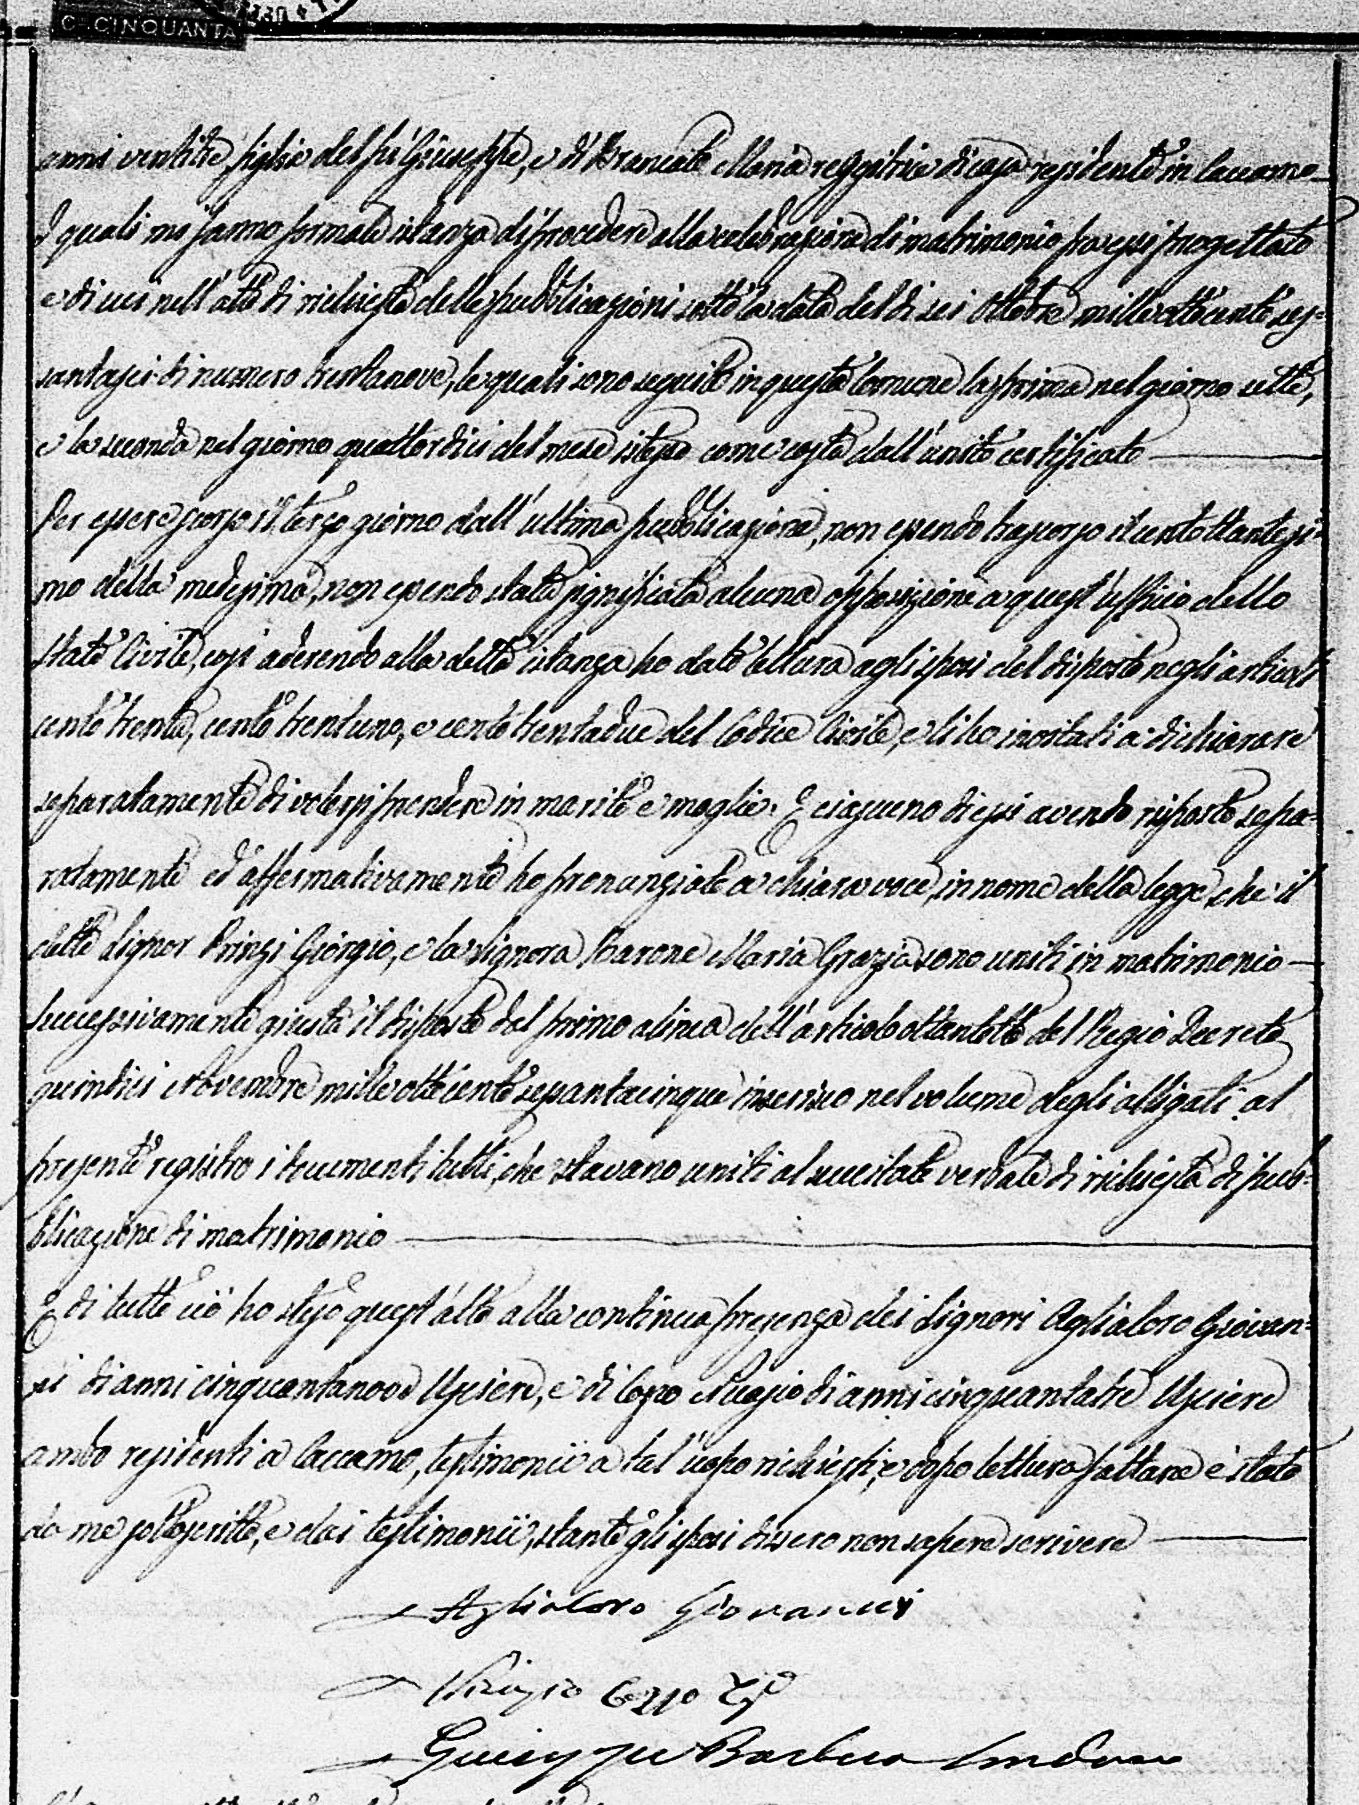 C. CINQUANTA
anni ventitre figlia del fù Giuseppe, e di Brancato Maria reggitrice di casa residente in Caccamo
I quali mi fanno formale istanza di procedere alla celebrazione di matrimonio fra essi progettato
e di cui nell'atto di richiesta delle pubblicazioni sotto la data del dì sei Ottobre mille ottocento ses=
santasei di numero trentanove, le quali sono seguite in questa Comune la prima nel giorno sette,
e la seconda nel giorno quattordici del mese istesso come costa dall'unito certificato
Per essere scorso il terzo giorno dall'ultima pubblicazione, non essendo trascorso il centottantesi=
mo della medesima, non essendo stata significata alcuna opposizione a quest'ufficio dello
Stato Civile, così aderendo alla detta istanza ho dato lettura agli sposi del disposto negli articoli
cento trenta, cento trentuno, e cento trentadue del Codice Civile, e li ho invitati a dichiarare
separatamente di volersi prendere in marito e moglie. E ciascuno di essi avendo risposto sepa=
ratamente ed affermativamente ho pronunziato a chiara voce, in nome della legge, che il
detto Signor Prinzi Giorgio, e la Signora Barone Maria Grazia sono uniti in matrimonio
Successivamente giusta il disposto del primo alinea dell'articolo ottantotto del Regio Decreto
quindici Novembre mille ottocento sessantacinque inserisco nel volume degli alligati al
presente registro i documenti tutti, che stavano uniti al succitato verbale di richiesta di pub=
blicazione di matrimonio
E di tutto ciò ho steso quest'atto alla continua presenza dei Signori Aglialoro Giovan=
ni di anni cinquantanove Usciere, e di Cozzo Nunzio di anni cinquantatre Usciere
ambo residenti a Caccamo, testimonii a tal uopo richiesti, e dopo lettura fattane è stato
da me sottoscritto, e dai testimonii, stante gli sposi dissero non sapere scrivere
Aglialoro Giovanni
Nunzio Cozzo
Giuseppe Barbera